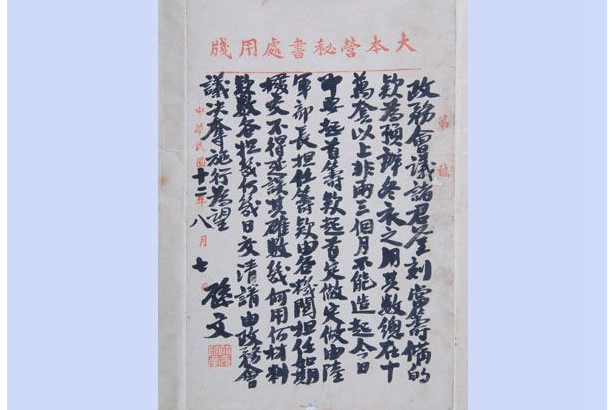 大本營秘書處用牋
第 號
政務會議諸君鑒刻當籌備的
欵為預辦冬衣之用其數總在十
萬套以上非兩三個月不能造起今日
即要起首籌欵起首定做定做由陸
軍部長担任籌欵由各機關担任如期
撥交不得延誤其確數幾何用何材料
欵數各担幾何幾日交清請由政務會
議決奪施行為望
孫文
中華民國十二年八月七日